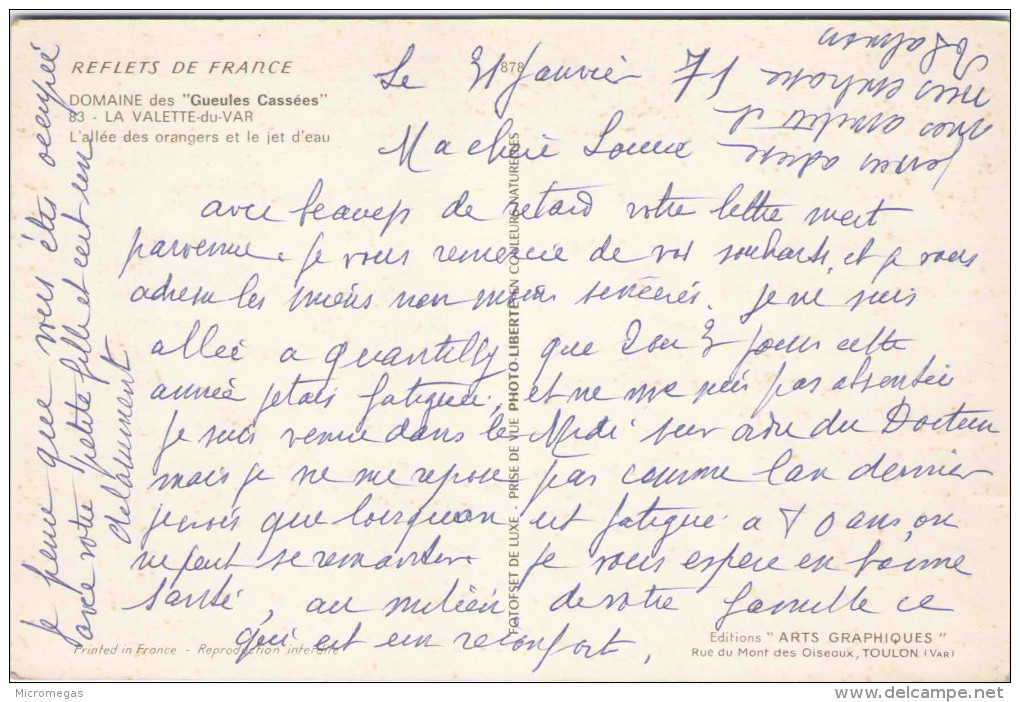 REFLETS DE FRANCE
878
DOMAINE des "Gueules Cassées"
83 - LA VALETTE-du-VAR
L'allée des orangers et le jet d'eau
Le 31 Janvier 71
Ma chère
avec beaucp de retard votre lettre mest
parvenue. je vous remercie de vos souhaits, et je vous
adresse les miens non moins sincères. je ne suis
allée a Quantilly que 2 ou 3 jours cette
année jetais fatiguée, et ne me suis pas absentée
je suis venue dans le Midi sur ordre du Docteur
mais je ne me repose pas comme lan dernier
je crois que lorsquon est fatigué a 80 ans, on
ne peut se remonter je vous espère en bonne
Santé, au milieu de votre famille ce
qui est un reconfort.
je pense que vous êtes occupée
avec votre petite fille et cest un
delassement
je vous adresse
mes amitiés et
PHOTOFSET DE LUXE - PRISE DE VUE PHOTO-LIBERTÉ EN COULEURS NATURELLES
Editions "ARTS GRAPHIQUES"
Rue du Mont des Oiseaux, TOULON (VAR)
Printed in France - Reproduction interdite
Micromegas
delcampe.net